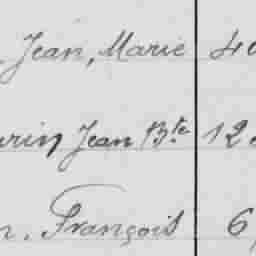 Jean, Marie 40
urin Jean Bte 12
n. François 6